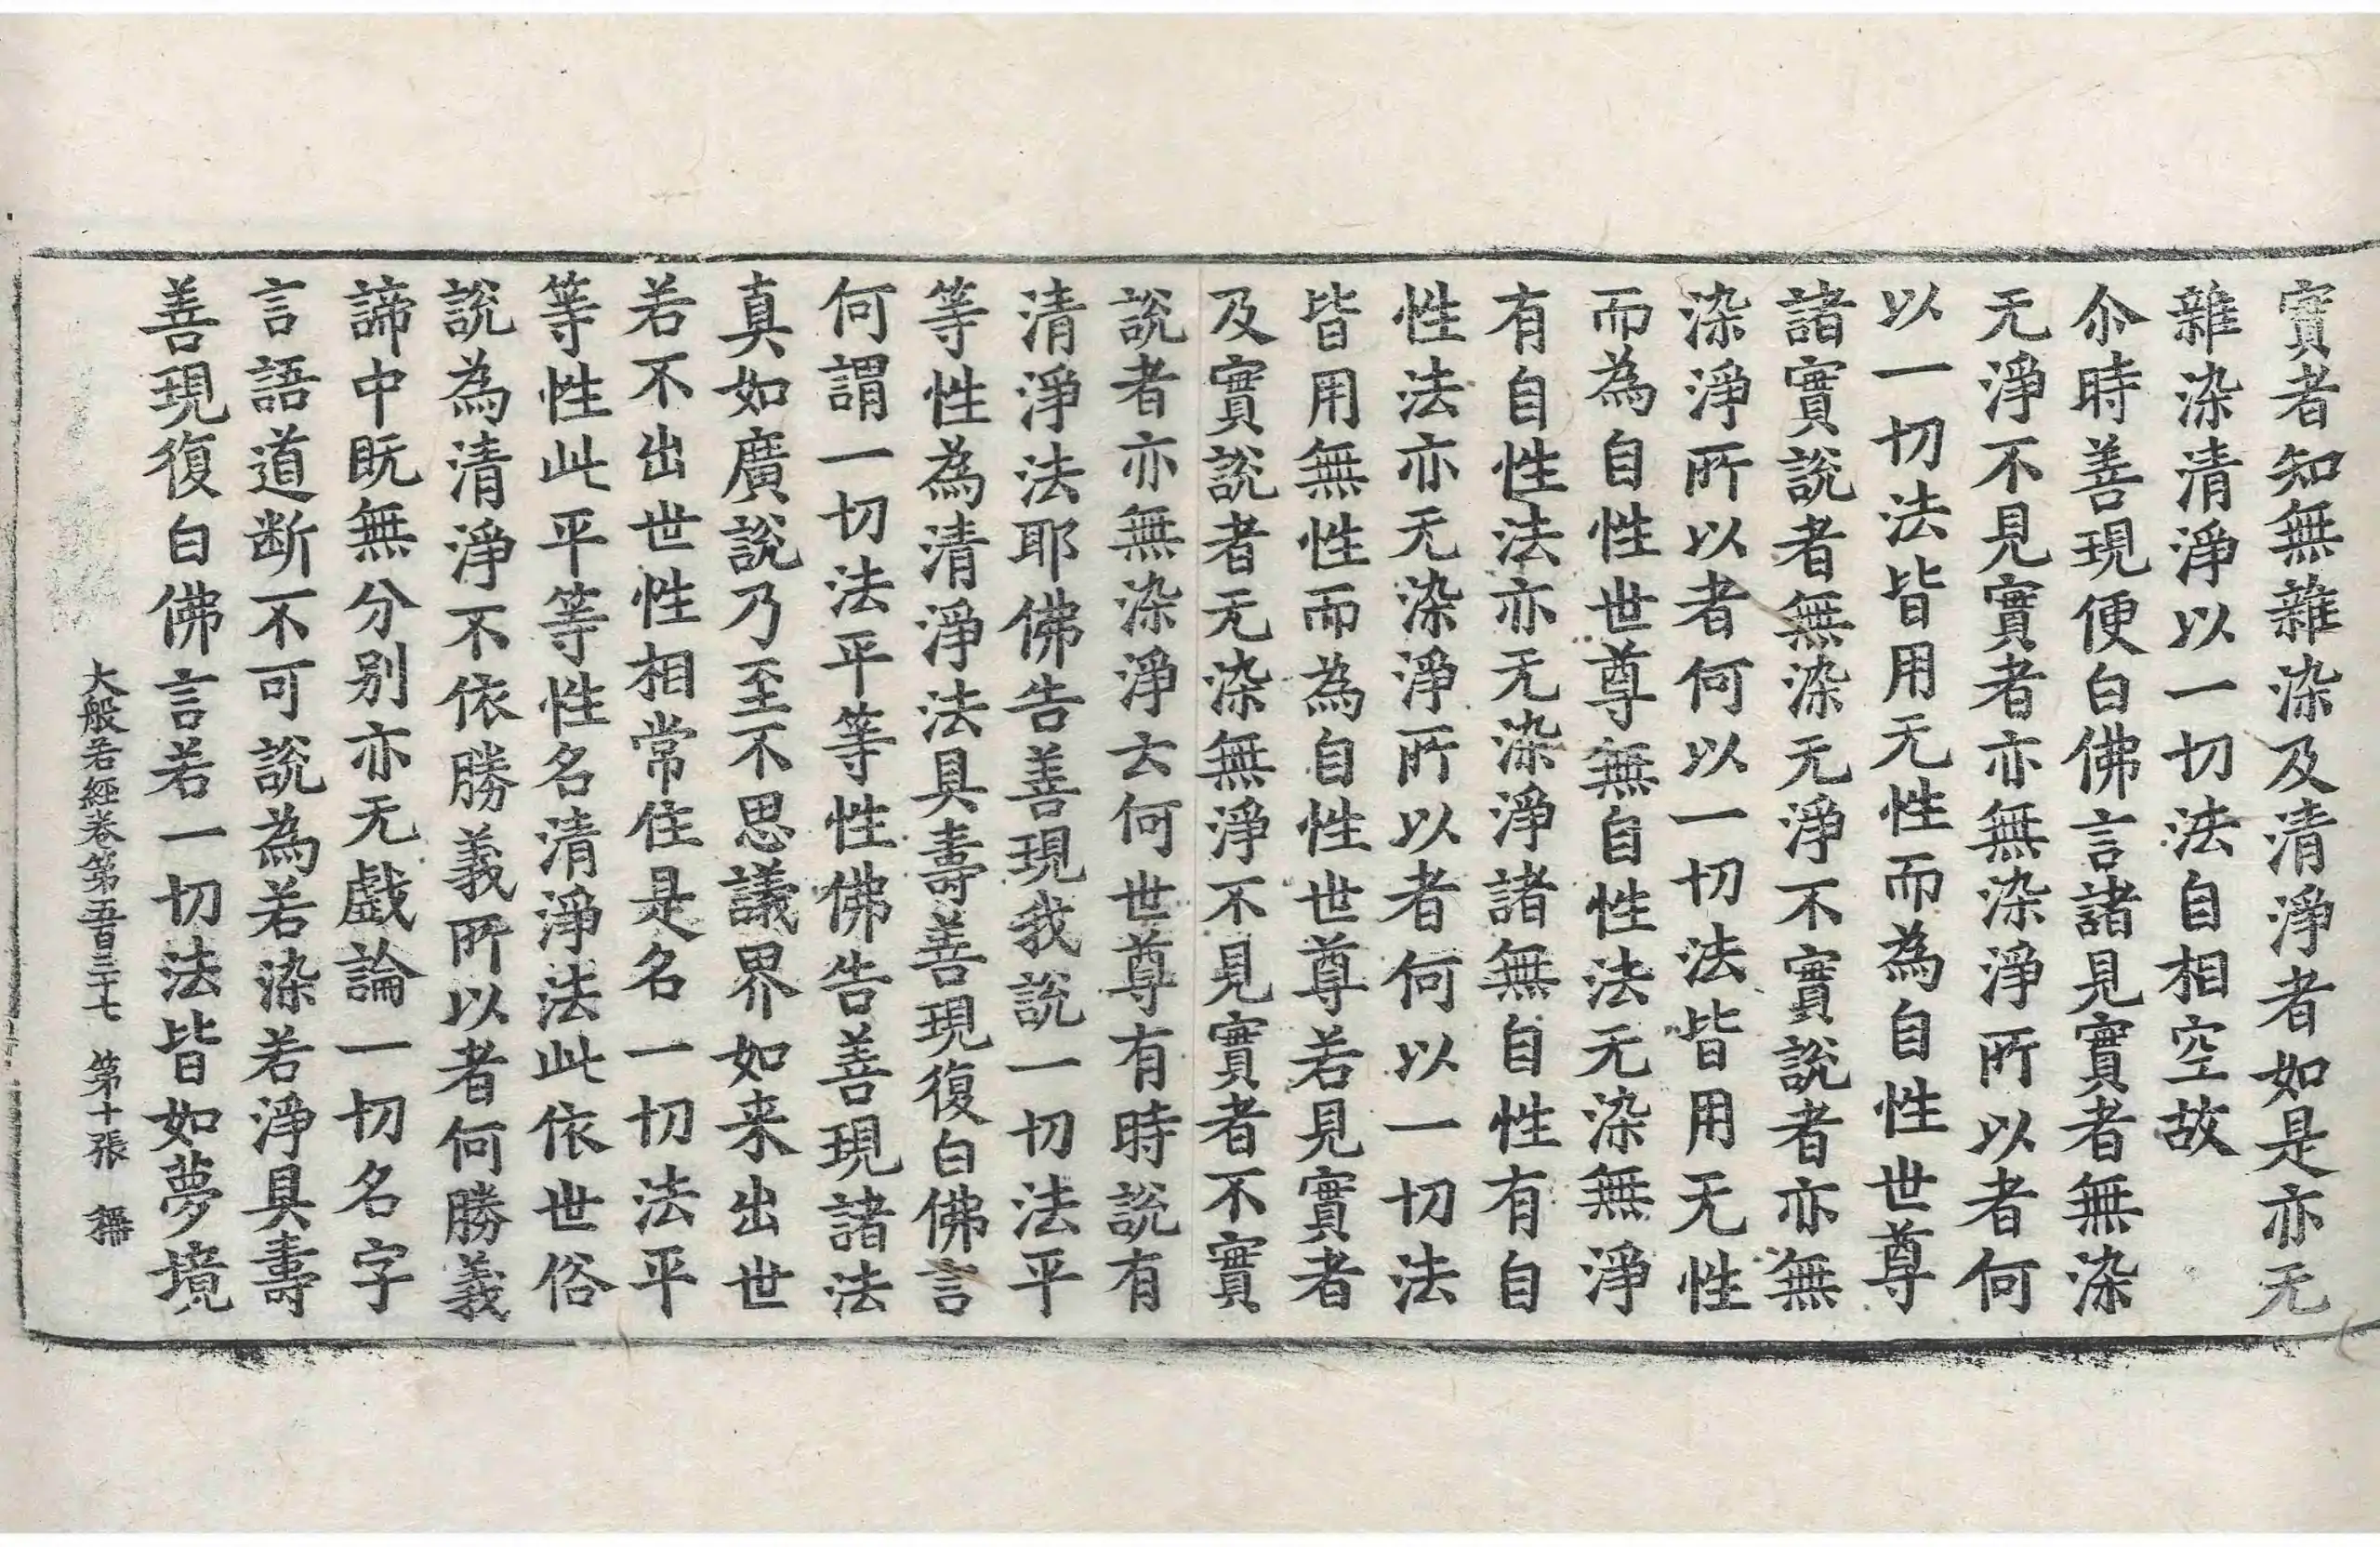 實者知無雜染及清淨者如是亦无
雜染清淨以一切法自相空故
尒時善現便白佛言諸見實者無染
无淨不見實者亦無染淨所以者何
以一切法皆用无性而為自性世尊
諸實說者無染无淨不實說者亦無
染淨所以者何以一切法皆用无性
而為自性世尊無自性法无染無淨
有自性法亦无染淨諸無自性有自
性法亦无染淨所以者何以一切法
皆用無性而為自性世尊若見實者
及實說者无染無淨不見實者不實
說者亦無染淨云何世尊有時說有
清淨法耶佛告善現我說一切法平
等性為清淨法具壽善現復白佛言
何謂一切法平等性佛告善現諸法
真如廣說乃至不思議界如来出世
若不出世性相常住是名一切法平
等性此平等性名清淨法此依世俗
說為清淨不依勝義所以者何勝義
諦中既無分別亦无戲論一切名字
言語道断不可說為若染若淨具壽
善現復白佛言若一切法皆如夢境
大般若經卷第五百三十七 第十張 稱